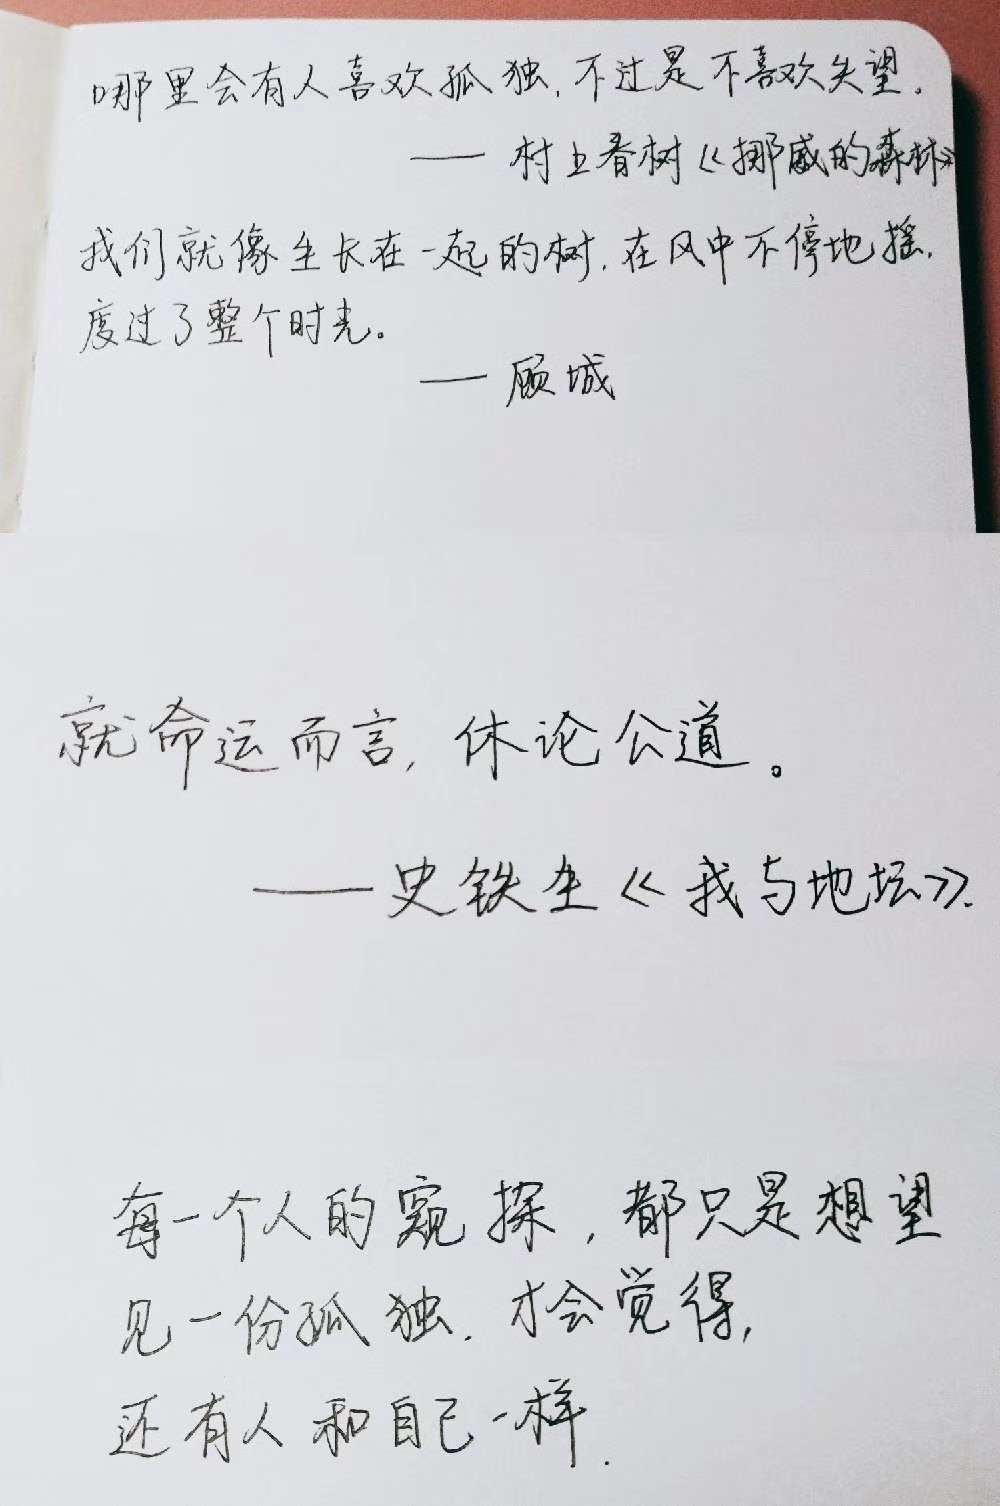 哪里会有人喜欢孤独,不过是不喜欢失望.
——村上春树《挪威的森林》
我们就像生长在一起的树,在风中不停地摇,
度过了整个时光。
——顾城
就命运而言,休论公道。
——史铁生《我与地坛》.
每一个人的窥探,都只是想望
见一份孤独.才会觉得,
还有人和自己一样.